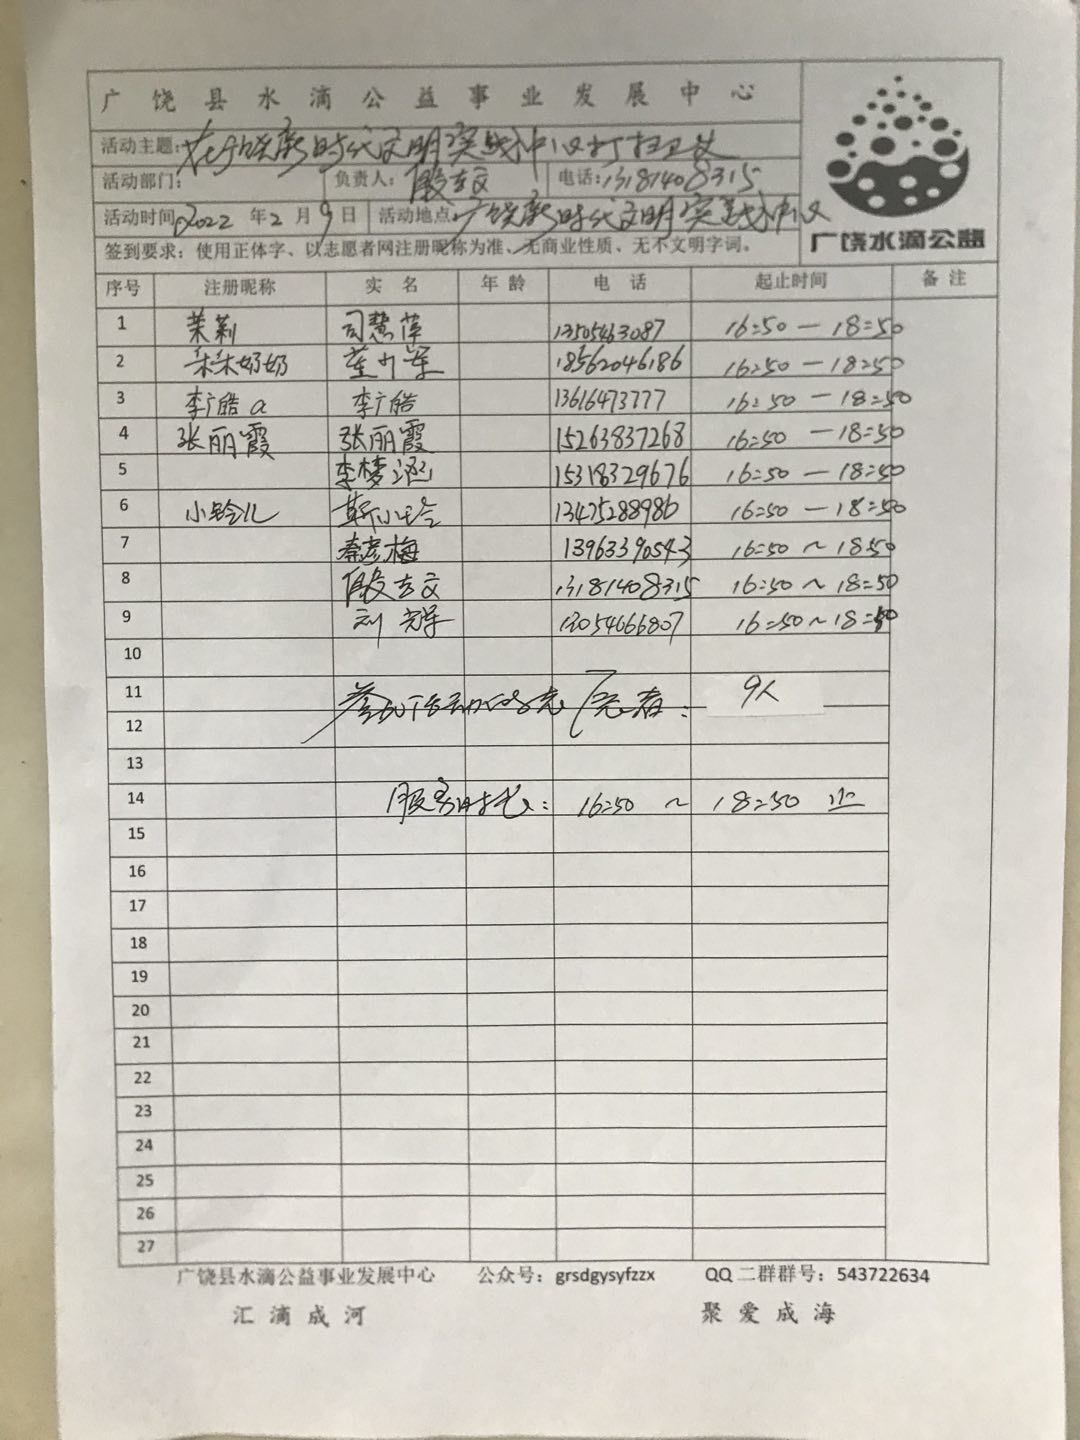 广饶县水滴公益事业发展中心
活动主题: 在广饶新时代文明实践中心打扫卫生
活动部门: 负责人: 殷志文 电话: 13181408315
活动时间 2022 年 2 月 9 日 活动地点 广饶新时代文明实践中心
广饶水滴公益
签到要求: 使用正体字、以志愿者网注册昵称为准、无商业性质、无不文明字词。
序号 注册昵称 实 名 年 龄 电 话 起止时间 备 注
1 茉莉 司慧萍 13505463087 16:50 — 18:50
2 朵朵奶奶 18562046186 16:50 — 18:50
3 李广皓a 李广皓 13616473777 16:50 — 18:50
4 张丽霞 张丽霞 15263837268 16:50 — 18:50
5 李梦涵 15318329676 16:50 — 18:50
6 小玲儿 靳小玲 13475288986 16:50 — 18:50
7 秦彦梅 13963390543 16:50 ~ 18:50
8 殷志文 13181408315 16:50 ~ 18:50
9 刘 13054666807 16:50 ~ 18:50
10
11 参加活动的志愿者: 9人
12
13
14 服务时长: 16:50 ~ 18:50 止
15
16
17
18
19
20
21
22
23
24
25
26
27
广饶县水滴公益事业发展中心 公众号: grsdgysyfzzx QQ 二群群号: 543722634
汇滴成河 聚爱成海